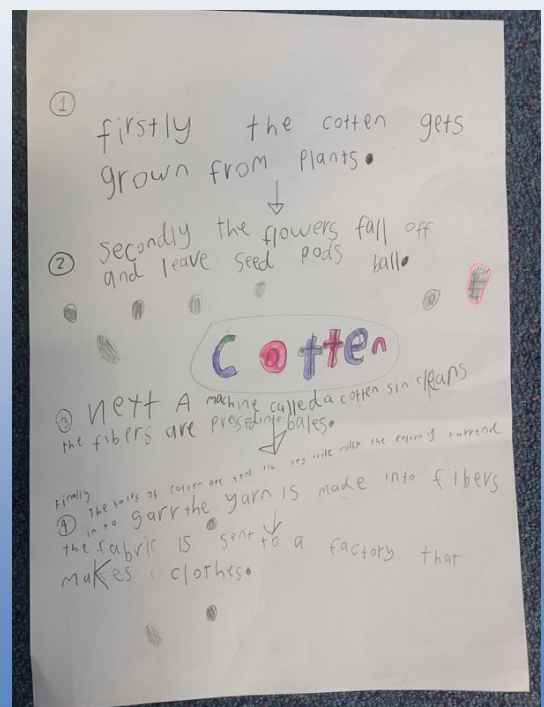 1
firstly the cotten gets
grown from plants.
2
secondly the flowers fall off
and leave seed pods ball.
Cotten
3 next A machine called a cotten sin cleans
the fibers are pressed into bales.
Finally
The balls of cotten are sent to textile mills the cotten is turrend
4 in to garr the yarn is made into fibers
the fabric is sent to a factory that
makes clothes.